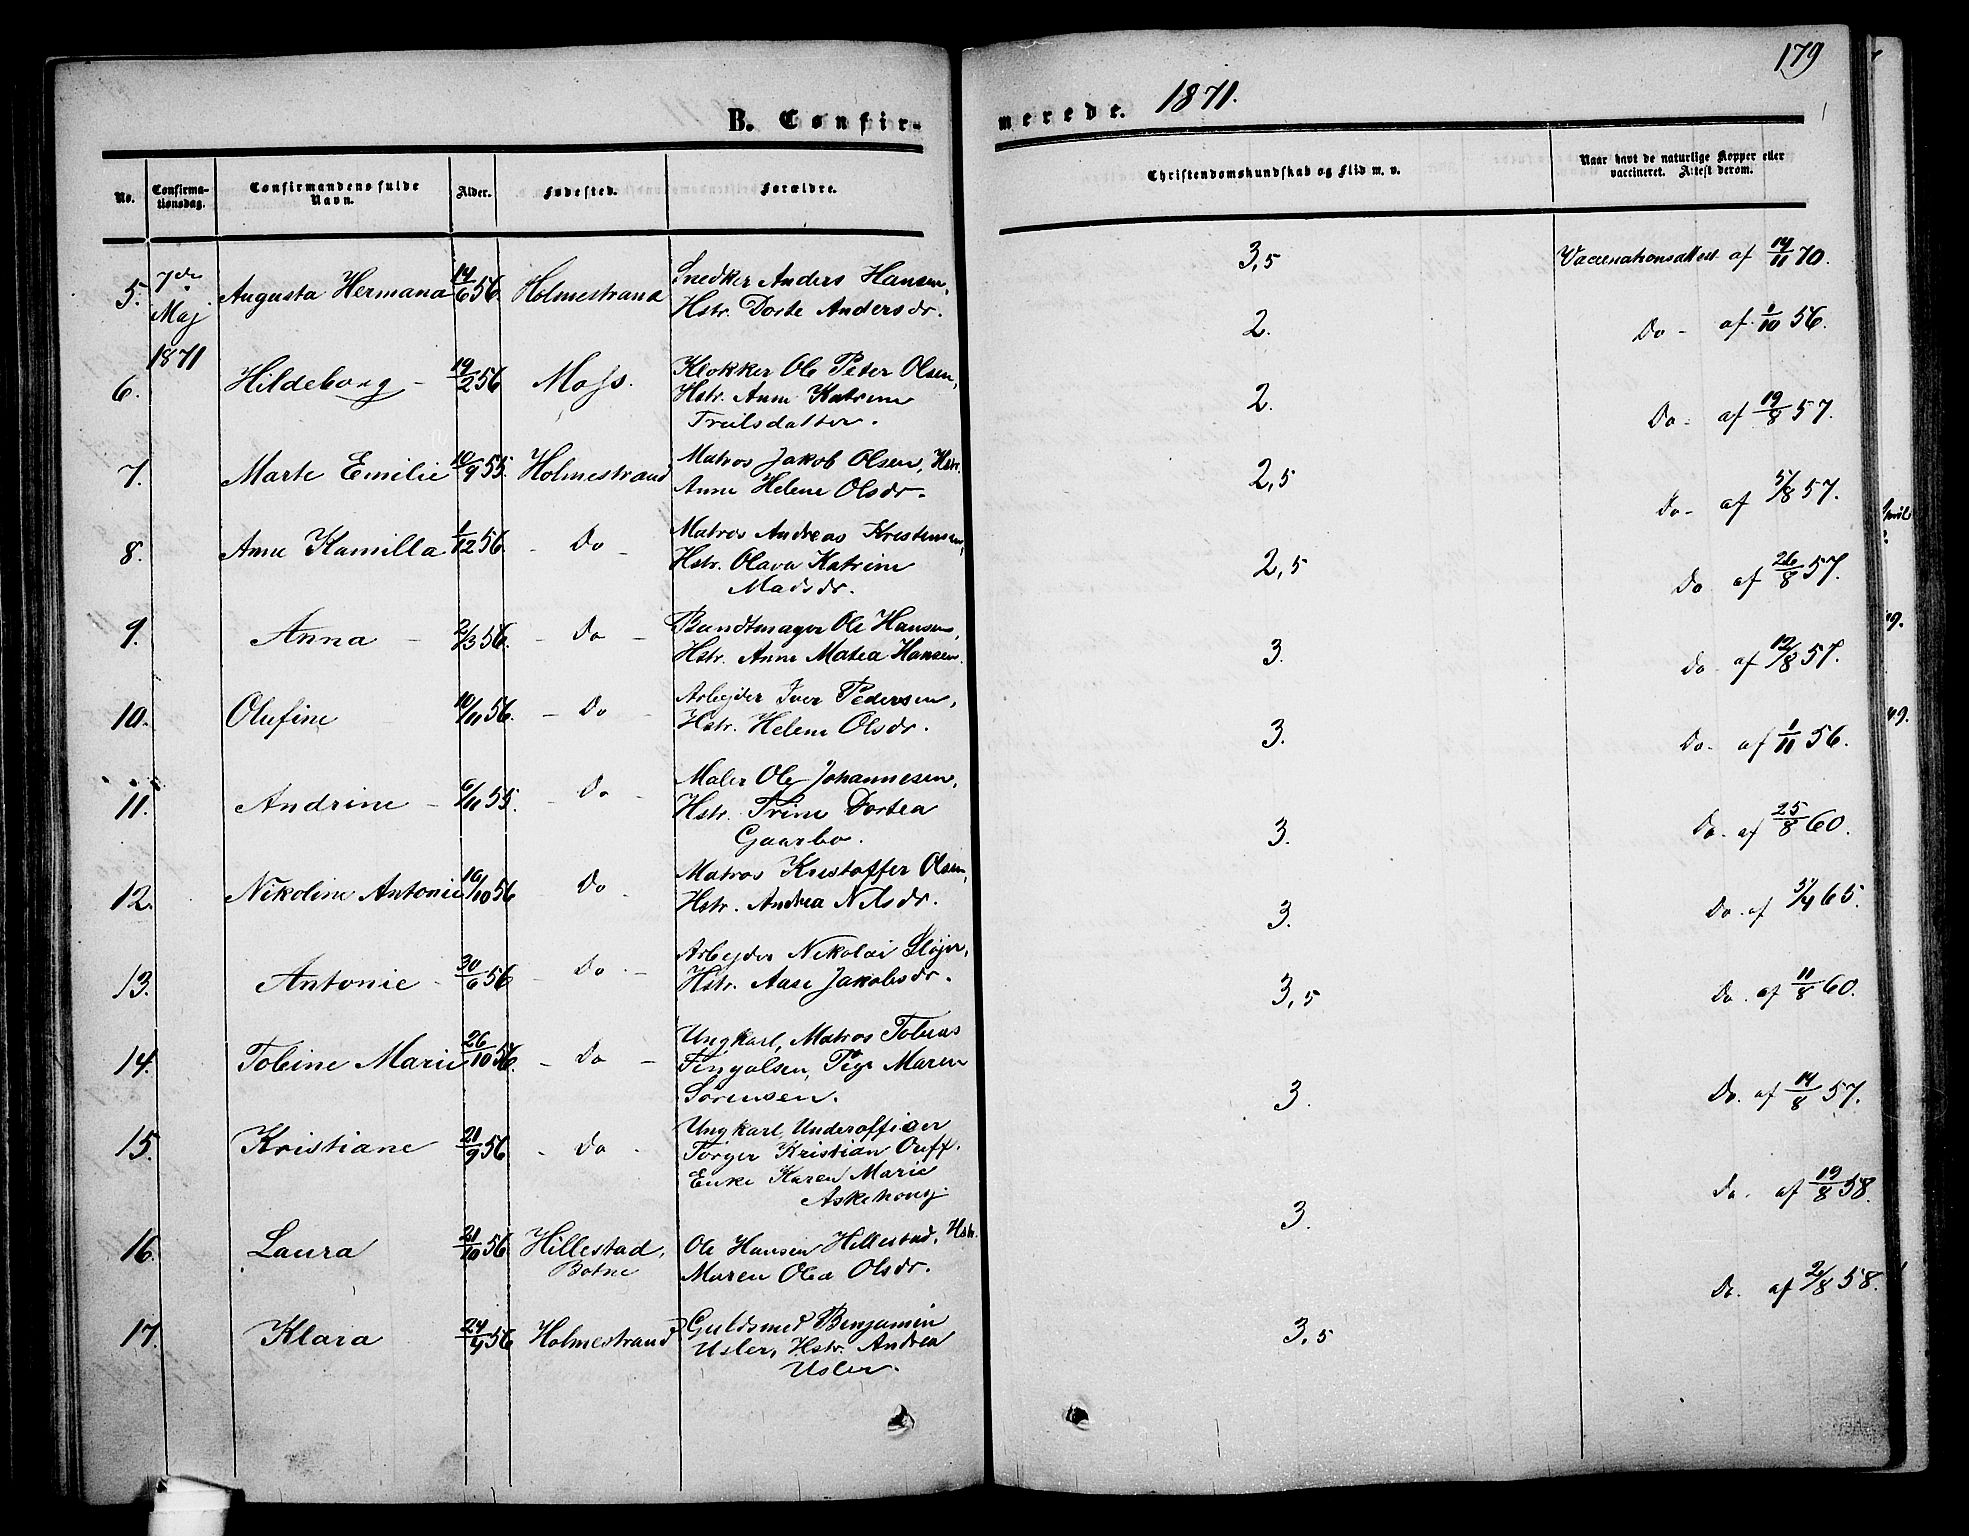 179
B. Confir-
merede. 1871.
No.
Confirma-
tionsdag.
Confirmandens fulde
Navn.
Alder.
Fødested.
Forældre.
Christendomskundskab og Flid m. v.
Naar havt de naturlige Kopper eller
vaccineret. Attest derom.
7de Maj 1871
5. Augusta Hermana 14/6 56. Holmestrand Snedker Anders Hansen,
Hstr. Dorte Andersdr.
3,5 Vaccinationsattest af 14/11 70.
6. Hildeborg - 19/2 56 Moss. Klokker Ole Peter Olsen,
Hstr. Anne Katrine
Trulsdatter.
2. Do - af 1/10 56.
7. Marte Emilie 10/9 55. Holmestrand Matros Jakob Olsen, Hstr.
Anne Helene Olsdr.
2. Do - af 19/8 57.
8. Anne Kamilla 1/12 56. - Do - Matros Andreas Kristensen,
Hstr. Olava Katrine
Madsdr.
2,5 Do - af 5/8 57.
9. Anna - 2/3 56. - Do - Bundtmager Ole Hansen,
Hstr. Anne Matea Hansen.
2,5 Do af 26/8 57.
10. Olufine 10/11 56. - Do - Arbejder Iver Pedersen,
Hstr. Helene Olsdr.
3. Do - af 12/8 57.
11. Andrine - 6/11 55. - Do - Maler Ole Johannesen,
Hstr. Trine Dortea
Gaarbo.
3. Do - af 1/11 56.
12. Nikoline Antonie 16/10 56 Do - Matros Kristoffer Olsen,
Hstr. Andrea Nilsdr.
3. Do. af 25/8 60.
13. Antonie - 30/6 56 - Do. - Arbejder Nikolai Sløjer,
Hstr. Aase Jakobsdr.
3. Do. af 5/4 65.
14. Tobine Marie 26/10 56. - Do - Ungkarl, Matros Tobias
Fingalsen, Pige Maren
Sørensen.
3,5 Do. af 11/8 60.
15. Kristiane 21/9 56 - Do - Ungkarl, Underofficer
Torger Kristian
Enke Karen Marie
Askehoug.
3. Do. af 14/8 57.
16. Laura 21/10 56. Hillestad,
Botne
Ole Hansen Hillestad, Hstr.
Maren Olea Olsdr.
3. Do. af 19/8 58.
17. Klara 24/9 56 Holmestrand Guldsmed Benjamin
Usler, Hstr. Andrea
Usler.
3,5 Do. af 2/8 58.